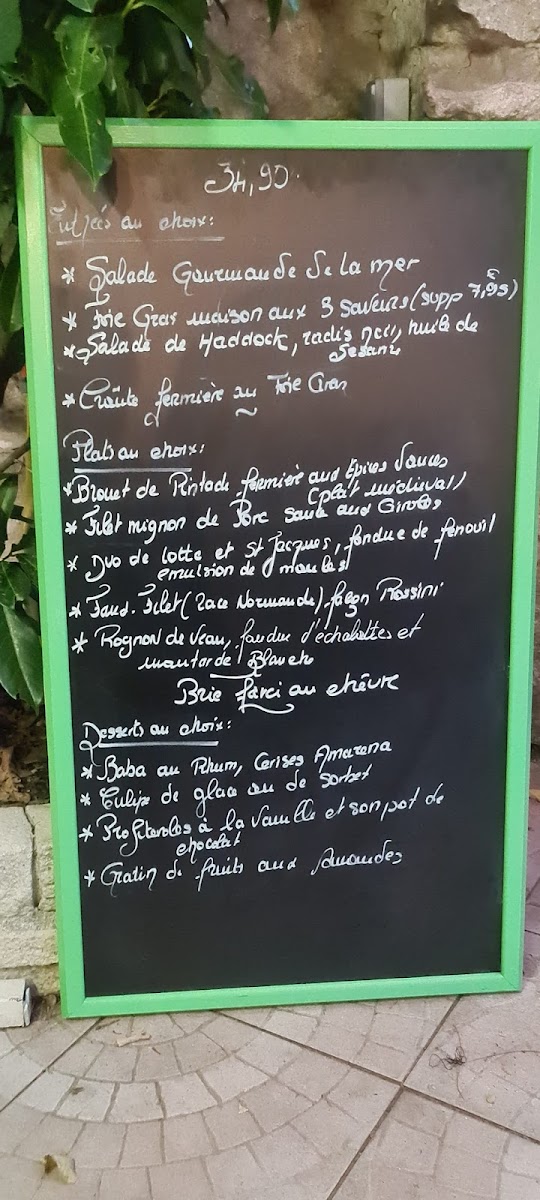 34,90.
Entrées au choix:
* Salade Gourmande de la mer
* Foie Gras maison aux 3 saveurs (supp 7,95€)
* Salade de Haddock, radis noir, huile de
Sesame
* Croûte fermière au Foie Gras
Plats au choix:
* Brouet de Pintade fermière aux Epices Douces
(plat médiéval)
* Filet mignon de Porc sauce aux Girolles
* Duo de lotte et St Jacques, fondue de fenouil
emulsion de moules
* Faux-Filet (Race Normande) façon Rossini
* Rognon de Veau, fondue d'échalottes et
moutarde Blanche
Brie farci au chêvre
Desserts au choix:
* Baba au Rhum, Cerises Amarena
* Tulipe de glace ou de Sorbet
* Profiteroles à la Vanille et son pot de
chocolat
* Gratin de fruits aux Amandes